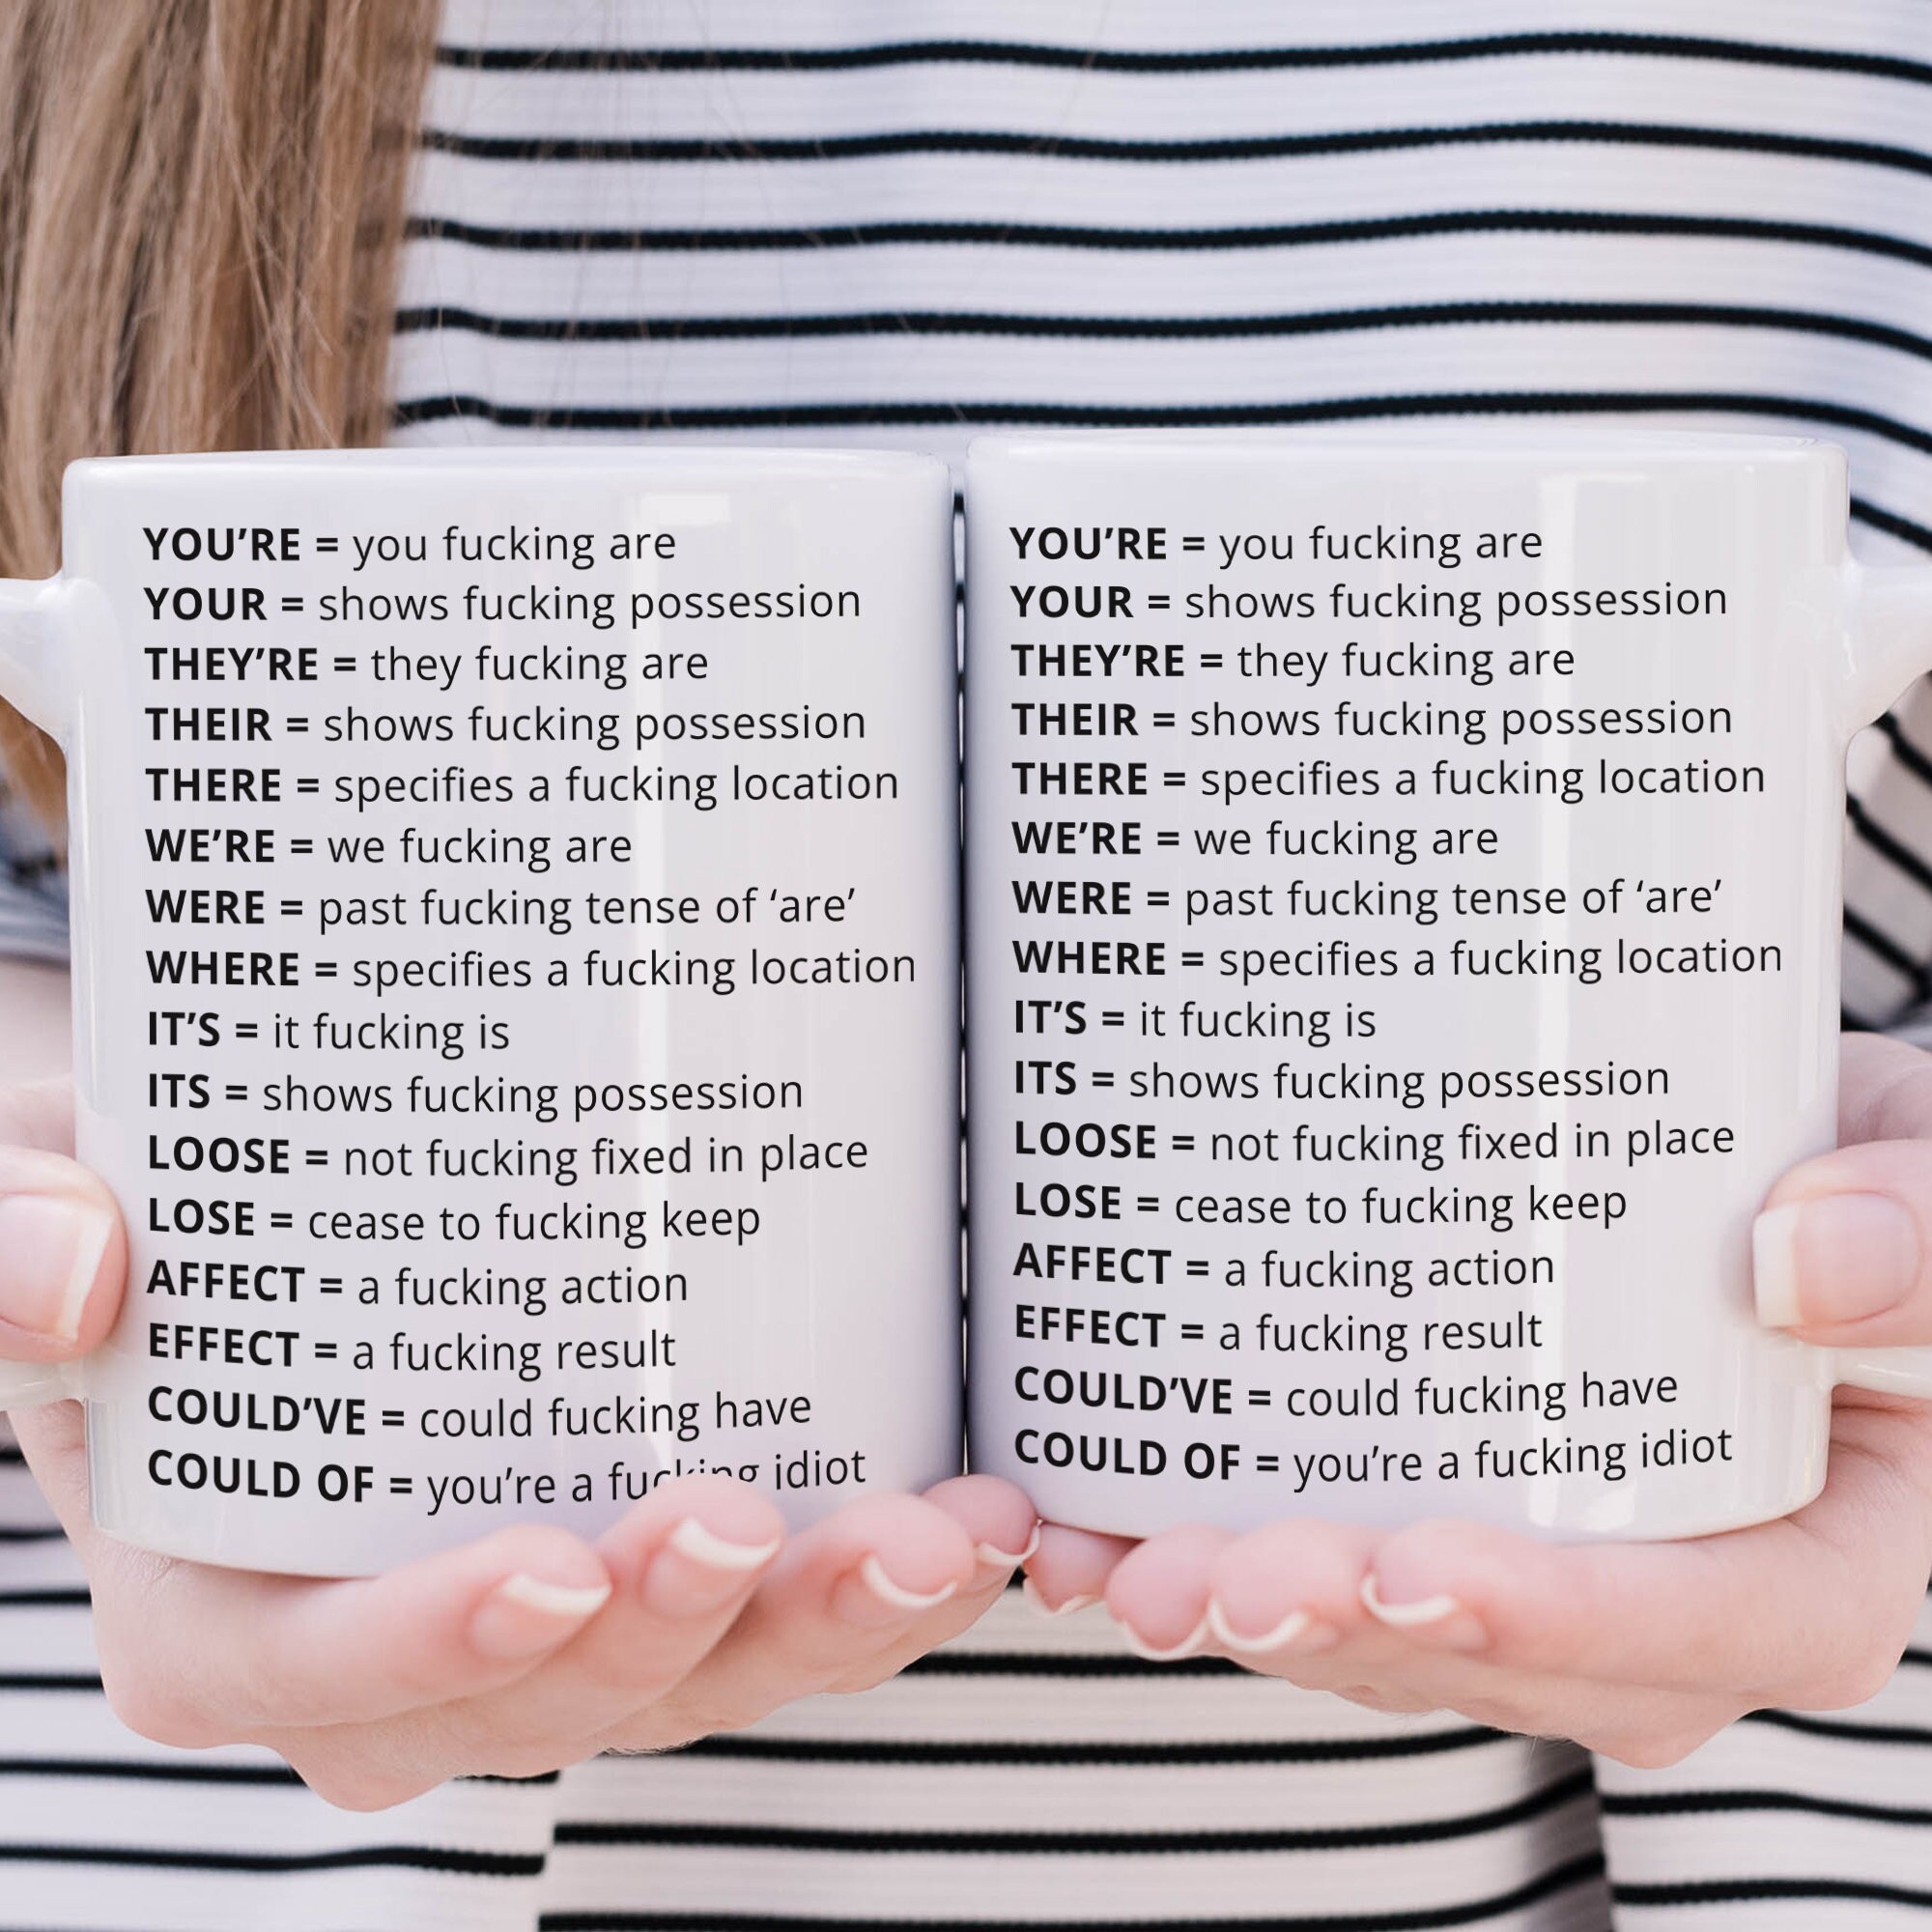 YOU’RE = you fucking are
YOUR = shows fucking possession
THEY’RE = they fucking are
THEIR = shows fucking possession
THERE = specifies a fucking location
WE’RE = we fucking are
WERE = past fucking tense of ‘are’
WHERE = specifies a fucking location
IT’S = it fucking is
ITS = shows fucking possession
LOOSE = not fucking fixed in place
LOSE = cease to fucking keep
AFFECT = a fucking action
EFFECT = a fucking result
COULD’VE = could fucking have
COULD OF = you’re a fucking idiot
YOU’RE = you fucking are
YOUR = shows fucking possession
THEY’RE = they fucking are
THEIR = shows fucking possession
THERE = specifies a fucking location
WE’RE = we fucking are
WERE = past fucking tense of ‘are’
WHERE = specifies a fucking location
IT’S = it fucking is
ITS = shows fucking possession
LOOSE = not fucking fixed in place
LOSE = cease to fucking keep
AFFECT = a fucking action
EFFECT = a fucking result
COULD’VE = could fucking have
COULD OF = you’re a fucking idiot